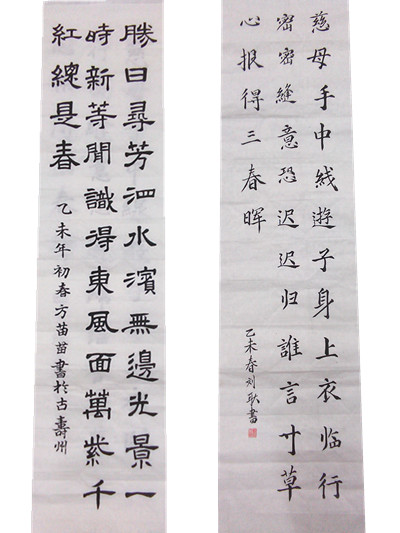 慈母手中线遊子身上衣临行
密密縫意恐迟迟归誰言寸草
心报得三春晖
乙未春刘耿書
勝日尋芳泗水濱無邊光景一
時新等閒識得東風面萬紫千
紅總是春
乙未年初春方苗苗書於古壽州